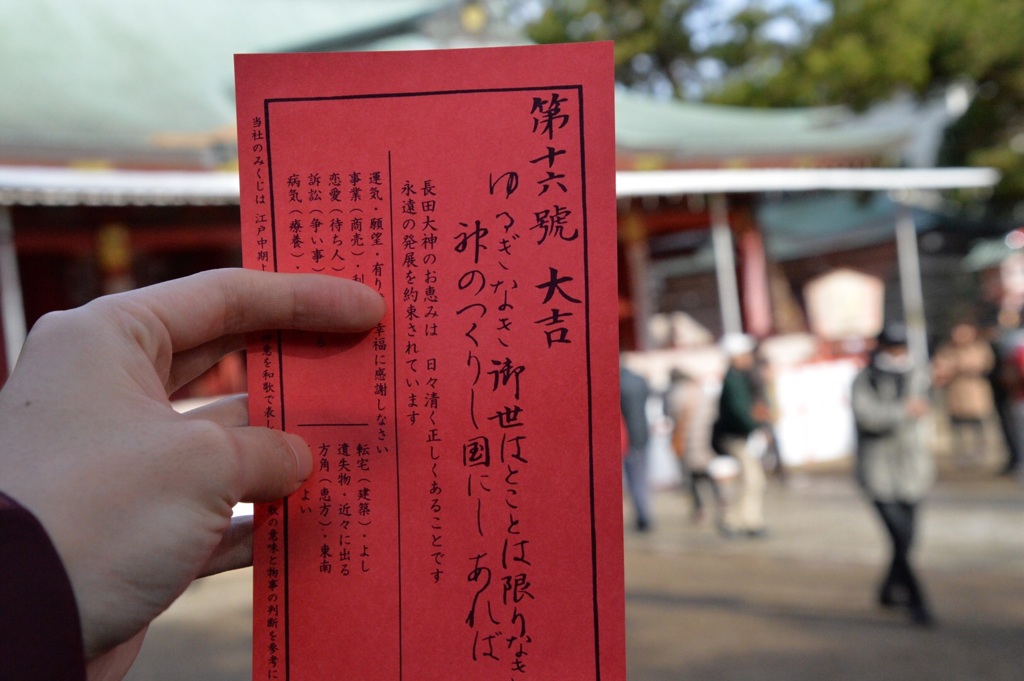 第十六號 大吉
ゆるぎなき御世はとことは限りなき
神のつくりし国にしあれば
長田大神のお恵みは 日々清く正しくあることです
永遠の発展を約束されています
運気・願望・有り 幸福に感謝しなさい
事業（商売）・利
恋愛（待ち人）
訴訟（争い事）
病気（療養）
転宅（建築）・よし
遺失物・近々に出る
方角（恵方）・東南
よい
当社のみくじは 江戸中期 を和歌で表し 歌の意味と物事の判断を参考に